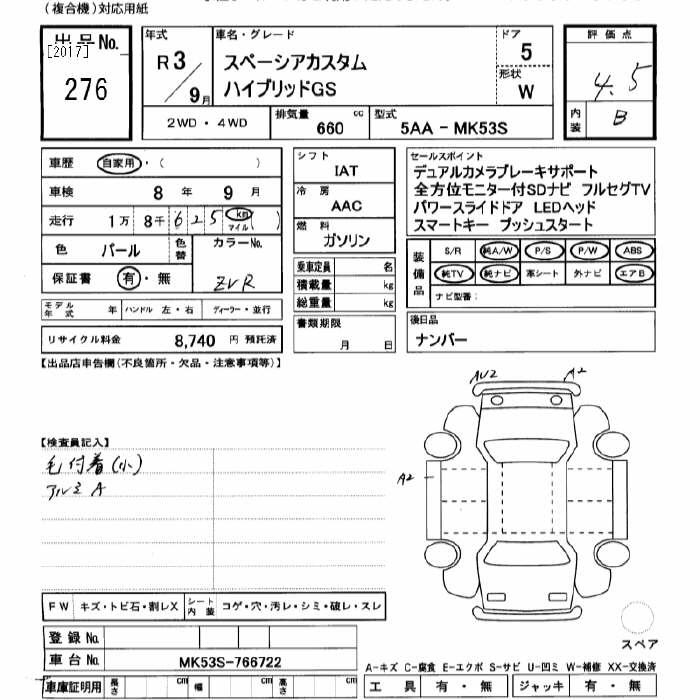 (複合機)対応用紙
出品No.
[2017]
276
年式
R3/9月
車名・グレード
スペーシアカスタム
ハイブリッドGS
ドア
5
形状
W
評価点
4.5
内装
B
2WD・4WD
排気量
660 cc
型式
5AA - MK53S
車歴 自家用・( )
車検 8年 9月
走行 1万 8千 625 km マイル ( )
色 パール 色替
カラーNo.
ZVR
保証書 有・無
モデル年式 年 ハンドル 左・右 ディーラー・並行
リサイクル料金 8,740 円 預託済
シフト
IAT
冷房
AAC
燃料
ガソリン
乗車定員 名
積載量 kg
総重量 kg
書類期限
月 日
セールスポイント
デュアルカメラブレーキサポート
全方位モニター付SDナビ フルセグTV
パワースライドドア LEDヘッド
スマートキー プッシュスタート
装備品
S/R 純A/W P/S P/W ABS
純TV 純ナビ 革シート 外ナビ エアB
ナビ型番:
後日品
ナンバー
【出品店申告欄(不良箇所・欠品・注意事項等)】
AU2
A2
A2
【検査員記入】
毛付着(小)
アルミ A
FW キズ・トビ石・割レX シート内装 コゲ・穴・汚レ・シミ・破レ・スレ
登録No.
車台No. MK53S-766722
車庫証明用 長さ cm 幅 cm 高さ cm
スペア
A-キズ C-腐食 E-エクボ S-サビ U-凹ミ W-補修 XX-交換済
工具 有・無 ジャッキ 有・無